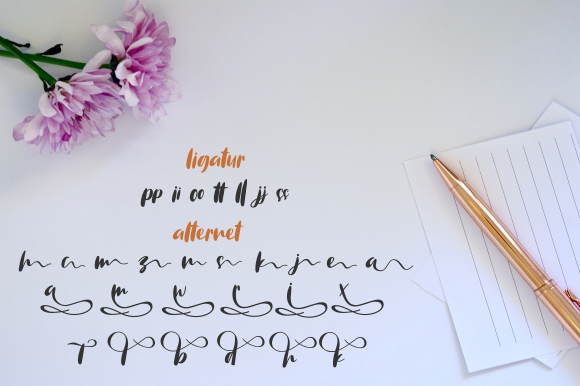 ligatur
pp ii oo tt ll jj ss
alternet
h m z m s k j e a
a m w r i x
l b d h k